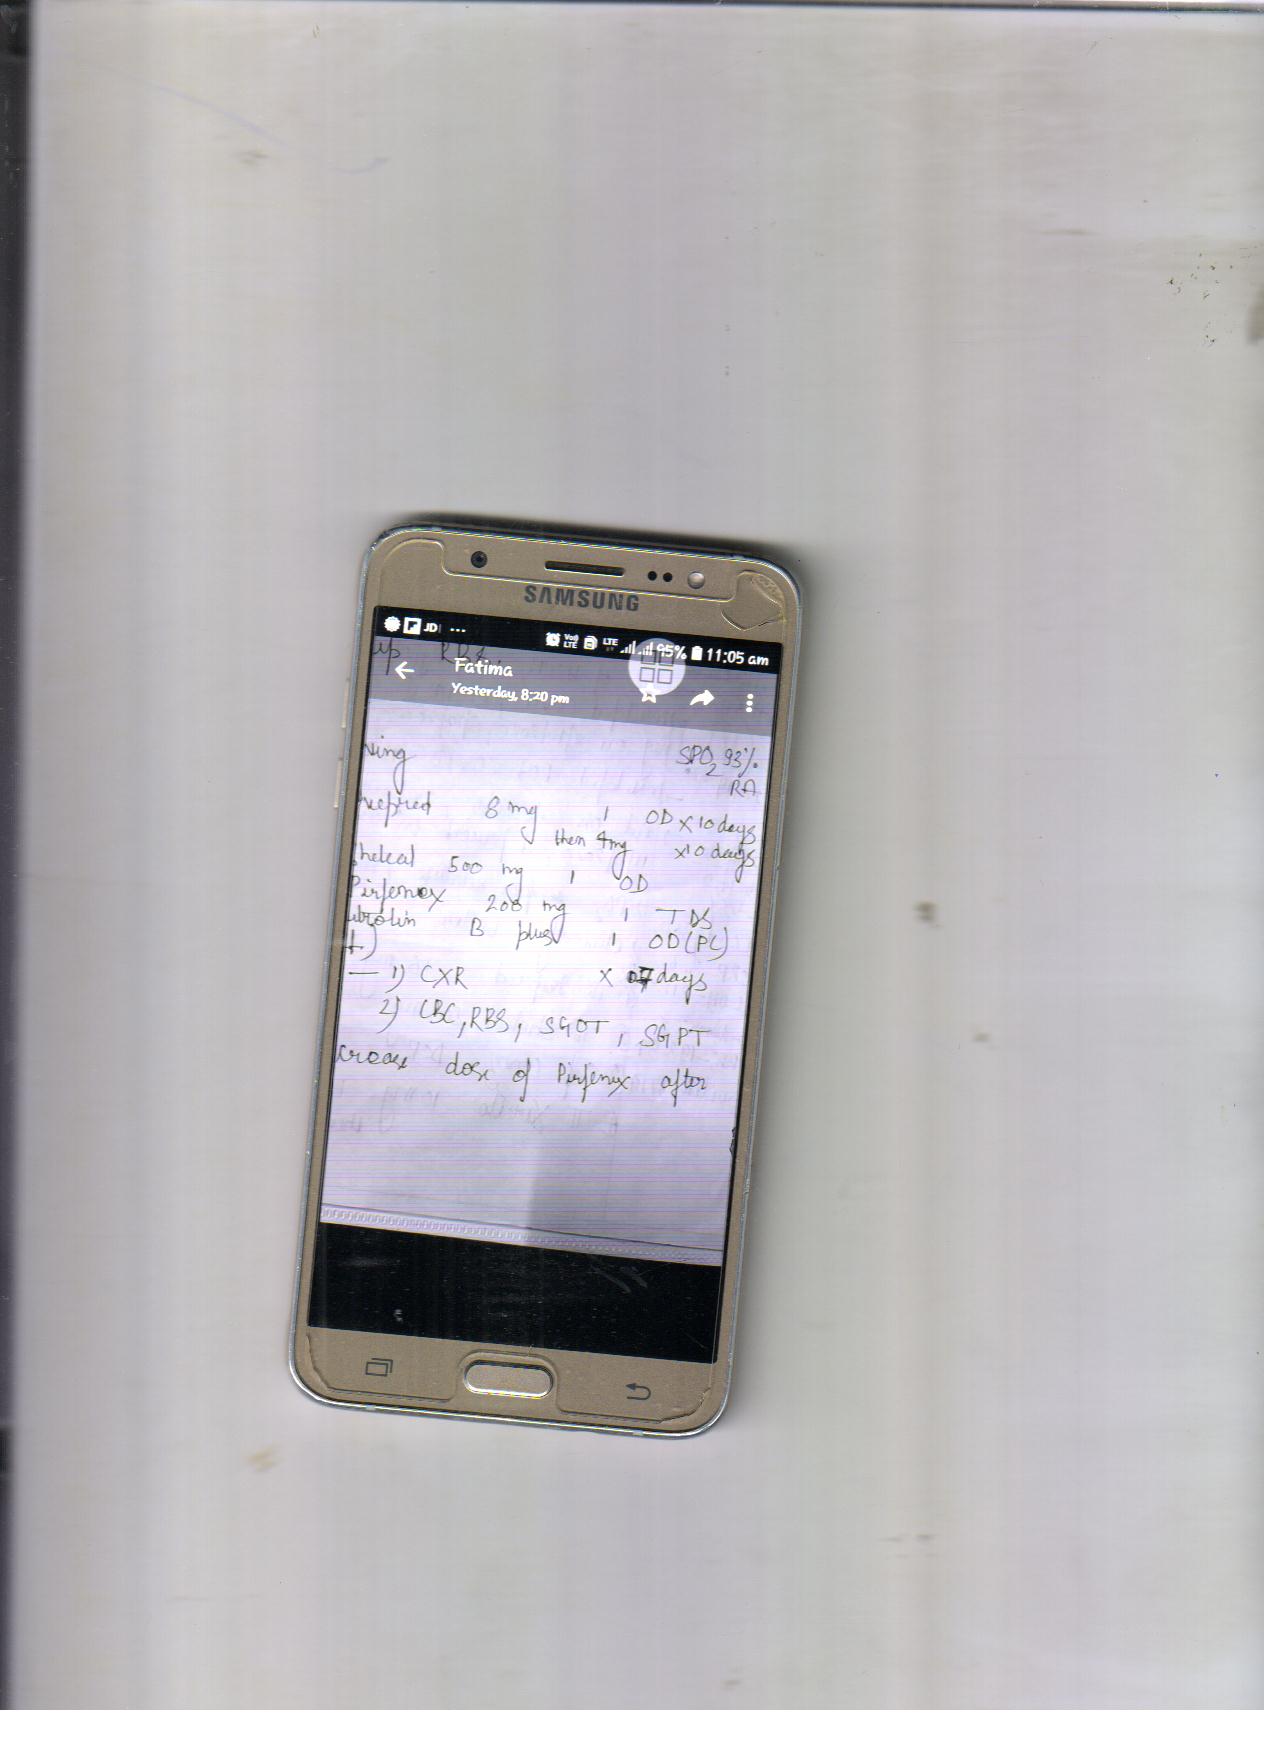 SAMSUNG
JD ... VoD LTE LTE 95% 11:05 am
up
Fatima
Yesterday, 8:20 pm
SPO2 93%
RA
8 mg 1 OD x 10 days
then 4mg x10 days
500 mg 1 OD
Pirfenex 200 mg 1 TDS
B plus 1 OD (PC)
— 1) CXR x 07 days
2) CBC, RBS, SGOT, SGPT
crease dose of Pirfenex after